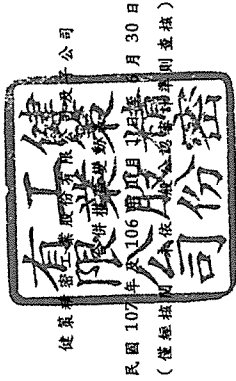 健策精密工業股份有限公司及子公司
合併權益變動表
民國 107 年及 106 年 1 月 1 日至 6 月 30 日
(僅經核閱,未依一般公認審計準則查核)
健策精密
工業股份
有限公司